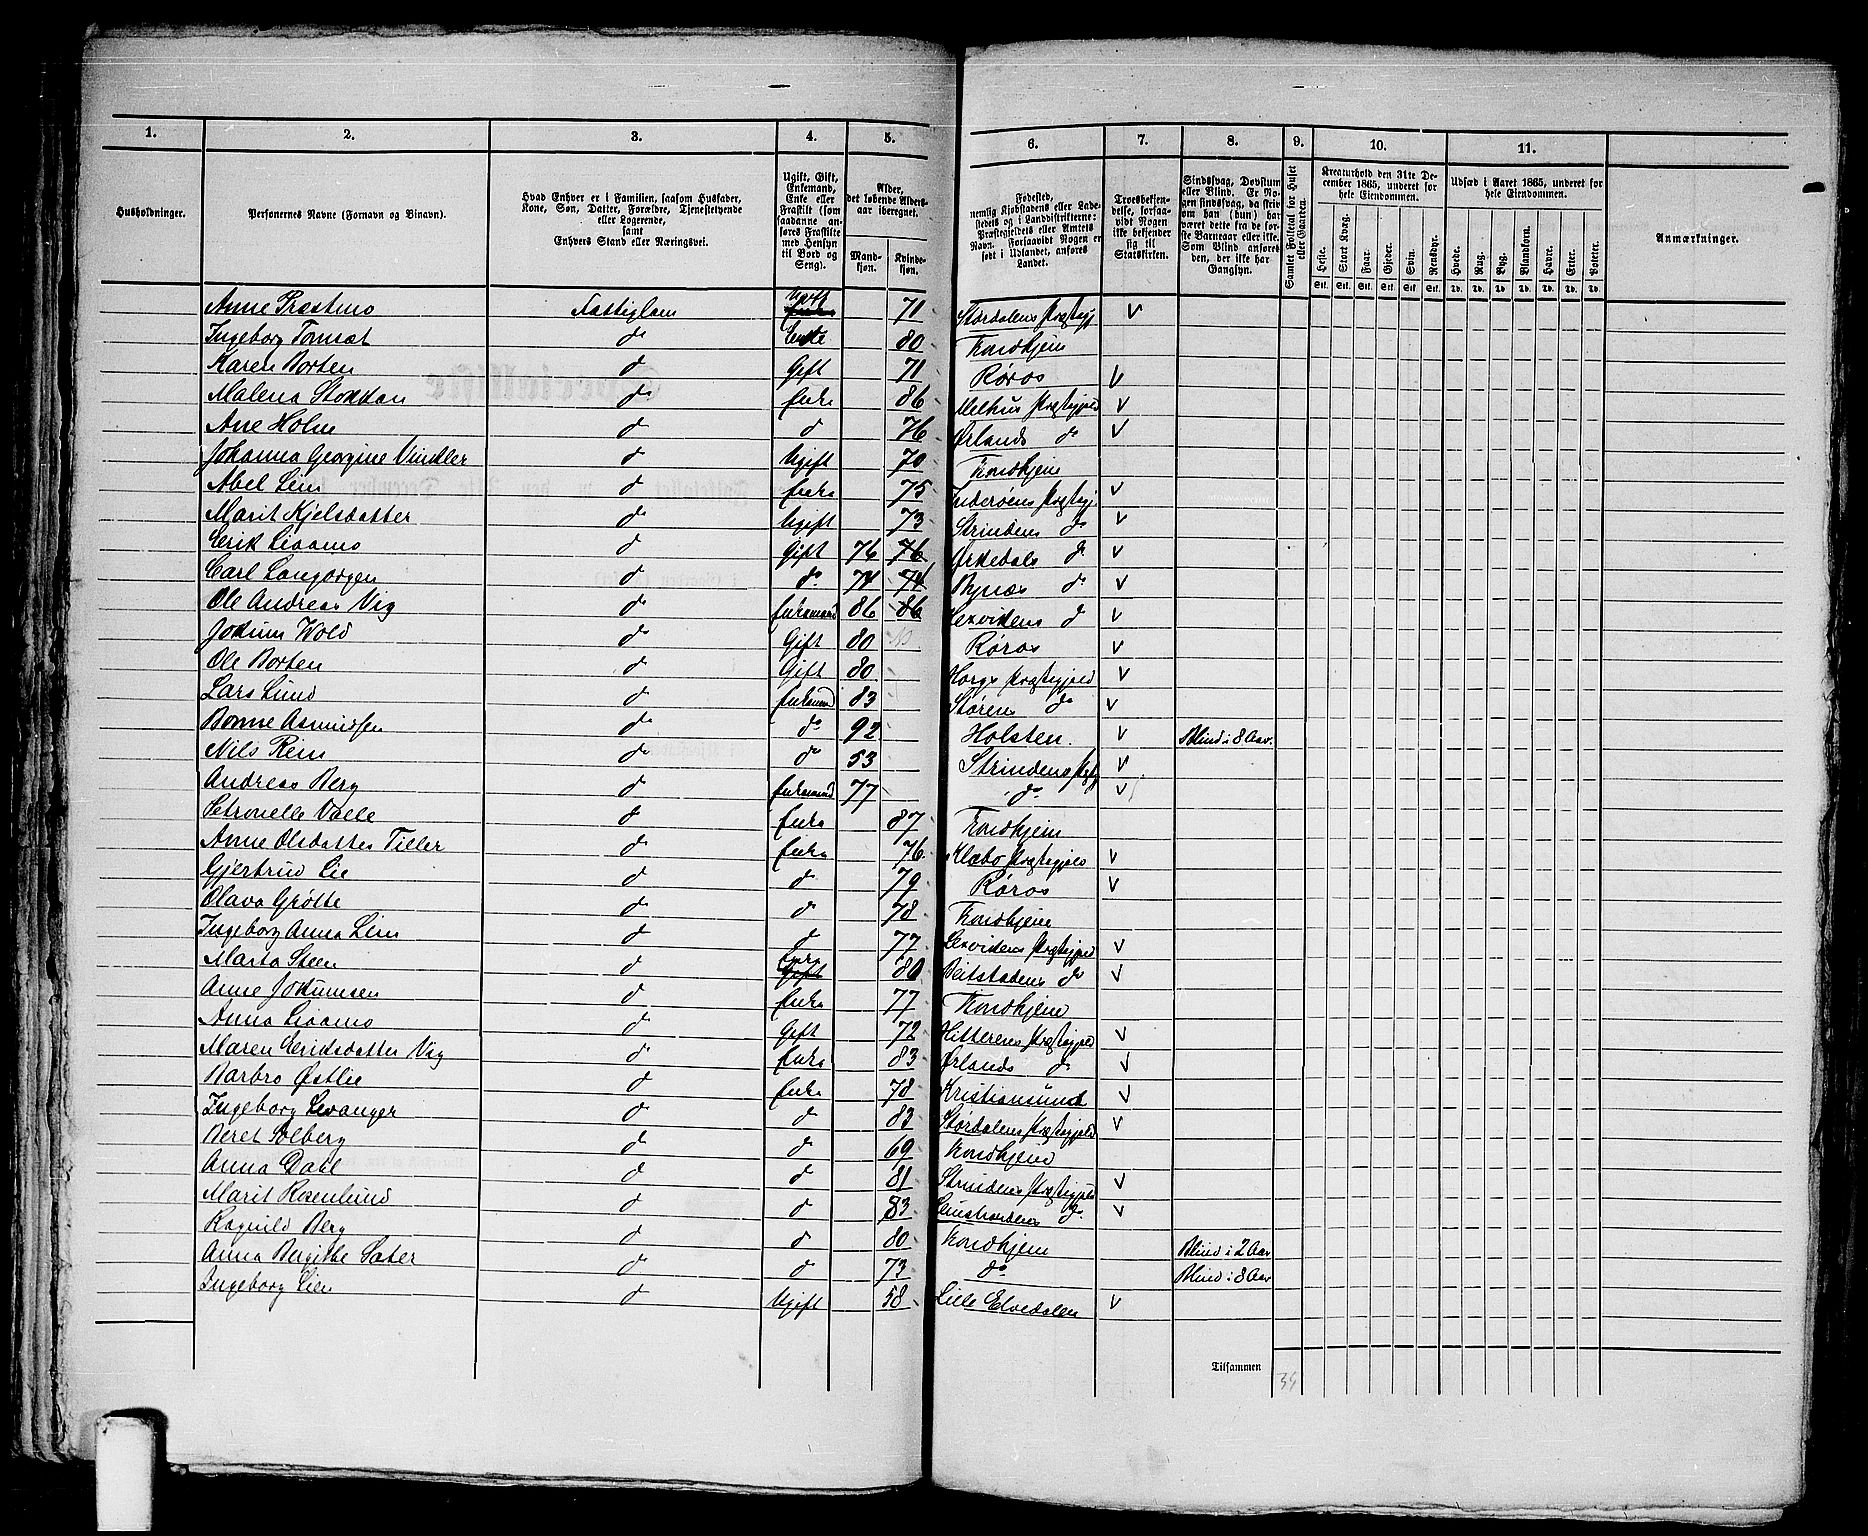 1. 2. 3. 4. 5. 6. 7. 8. 9. 10. 11.
Husholdninger.
Personernes Navne (Fornavn og Binavn).
Hvad Enhver er i Familien, saasom Husfader, Kone, Søn, Datter, Forældre, Tjenestetyende eller Logerende, samt Enhvers Stand eller Næringsvei.
Ugift, Gift, Enkemand, Enke eller Fraskilt (som saadanne anføres Fraskilte med Hensyn til Bord og Seng).
Alder, det løbende Aldersaar iberegnet.
Mandkjøn. Kvindekjøn.
Fødested, nemlig Kjøbstadens eller Ladestedets og i Landdistrikterne: Præstegjeldets eller Amtets Navn. Forsaavidt Nogen er født i Udlandet, anføres Landet.
Troesbekjendelse, forsaavidt Nogen ikke bekjender sig til Statskirken.
Sindssvag, Døvstum eller Blind. Er Nogen sindssvag, da skrives om han (hun) har været dette fra de første Barneaar eller ikke. Som Blind anføres den, der ikke har Gangsyn.
Samlet Folketal for Huset eller Gaarden.
Kreaturhold den 31te December 1865, underet for hele Eiendommen.
Heste. Stort Kvæg. Faar. Gjeder. Svin. Rensdyr.
Stk. Stk. Stk. Stk. Stk. Stk.
Udsæd i Aaret 1865, underet for hele Eiendommen.
Hvede. Rug. Byg. Blandkorn. Havre. Erter. Poteter.
Td. Td. Td. Td. Td. Td. Td.
Anmærkninger.
Anne Præstmo Fattiglem Ugift 71 Stordalens Præstegj v
Ingeborg Tomsæt do Enke 80 Trondhjem
Karen Borten do Gift 71 Røros v
Malena Stokkan do Enke 86 Melhus Præstegjeld v
Ane Holm do do 76 Ørlands do v
Johanna Georgine Vindler do Ugift 70 Trondhjem
Abel Lein do Enke 75 Inderøens Præstegj. v
Marit Kjelsdatter do Ugift 73 Strindens do v
Erik Liaamo do Gift 76 76 Ørkedals do v
Carl Langørgen do do 74 74 Bynæs do v
Ole Andreas Vig do Enkemand 86 86 Lexvikens do v
Jokum Wold do Gift 80 Røros v
Ole Borten do Gift 80 Horgs Præstegjeld v
Lars Lund do Enkemand 83 Støren do v
Bonne Asmundsen do do 92 Holsten. v Blind i 8 Aar.
Nils Rein do do 53 Strindens Præstgj v
Andreas Berg do Enkemand 77 do v
Petronelle Valle do Enke 87 Trondhjem
Anne Olsdatter Tiller do Enke 76 Klæbo Præstegjeld v
Gjertrud Lie do do 79 Røros v
Olava Grøtte do do 78 Trondhjem
Ingeborg Anna Lein do do 77 Lexvikens Præstegjeld v
Marta Steen do Enke Gift 80 Beitstadens do v
Anne Jokumsen do Enke 77 Trondhjem
Anna Liaamo do Gift 72 Hitterens Præstegjeld v
Maren Eriksdatter Vig do Enke 83 Ørlands do v
Barbro Østlie do Enke 78 Kristiansund v
Ingeborg Levanger do do 83 Størdalens Præstegjeld v
Beret Solberg do do 69 Trondhjem
Anna Dahl do do 81 Strindens Præstegjeld v
Marit Rosenlund do do 83 Leinstrandens do v
Ragnild Berg do do 80 Trondhjem Blind i 2 Aar
Anna Bergitte Sater do do 73 do Blind i 8 Aar
Ingeborg Lien do Ugift 58 Lille Elvedalen v
Tilsammen 34